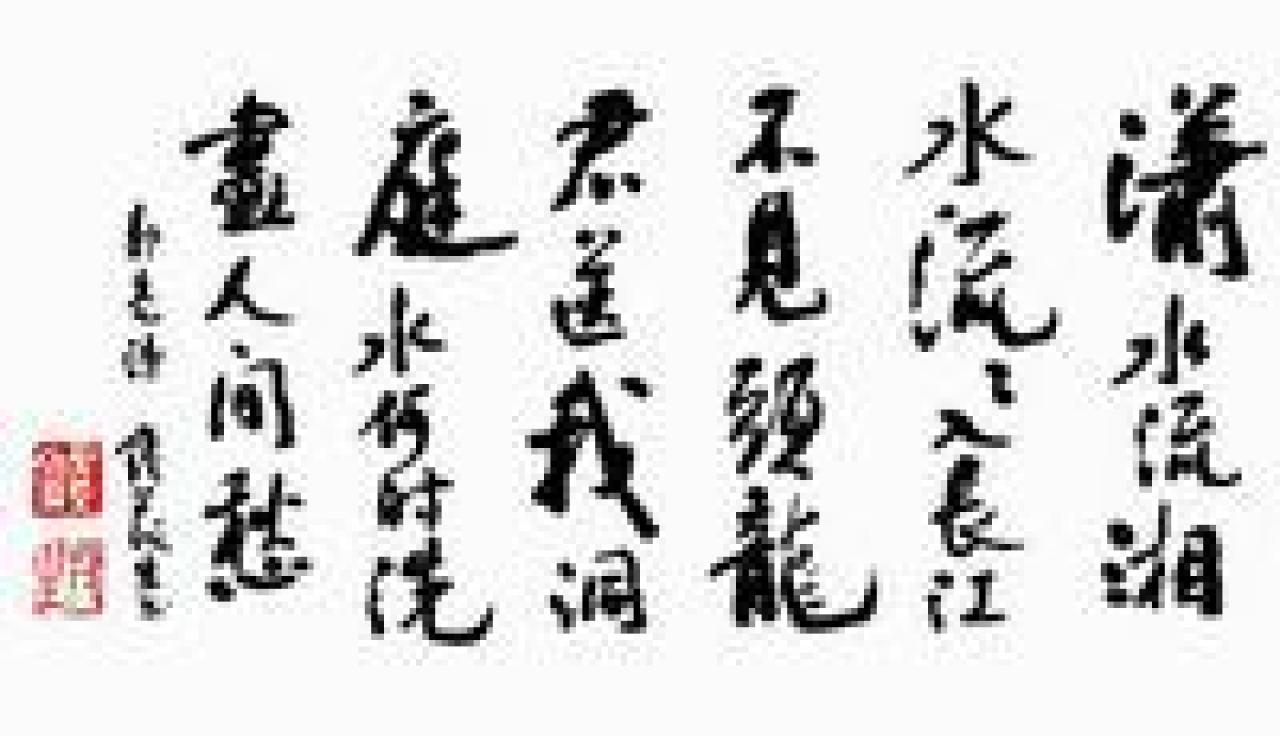 瀟水流湘
水流〻入長江
不見頭龍
君送我洞
庭水何时洗
盡人间愁